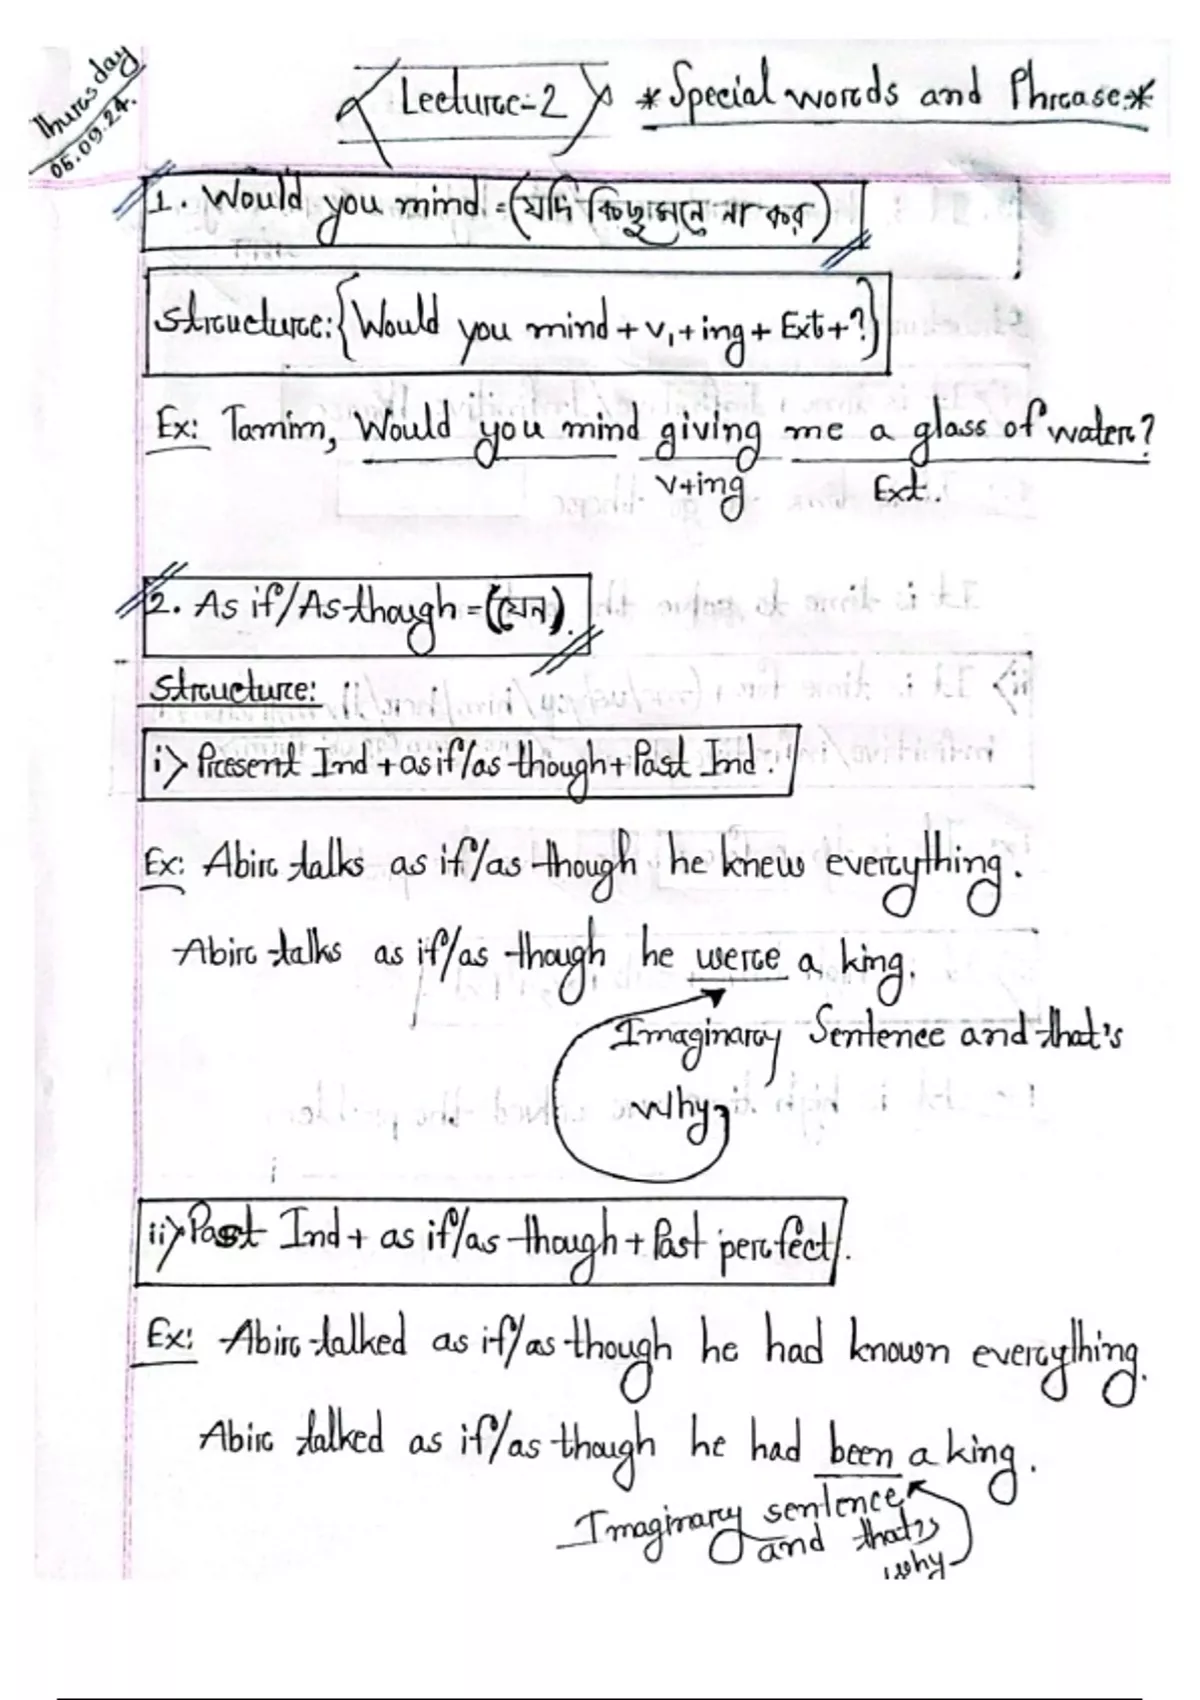 Thursday
05.09.24.
Lecture-2 *Special words and Phrase*
1. Would you mind = (যদি কিছু মনে না কর)
Structure: {Would you mind + v₁ + ing + Ext + ?}
Ex: Tamim, Would you mind giving me a glass of water?
v+ing Ext.
2. As if/As though = (যেন).
Structure:
i) Present Ind + as if/as though + Past Ind.
Ex: Abir talks as if/as though he knew everything.
Abir talks as if/as though he were a king.
Imaginary Sentence and that's
why
ii) Past Ind + as if/as though + Past perfect.
Ex: Abir talked as if/as though he had known everything.
Abir talked as if/as though he had been a king.
Imaginary sentence
and that's
why